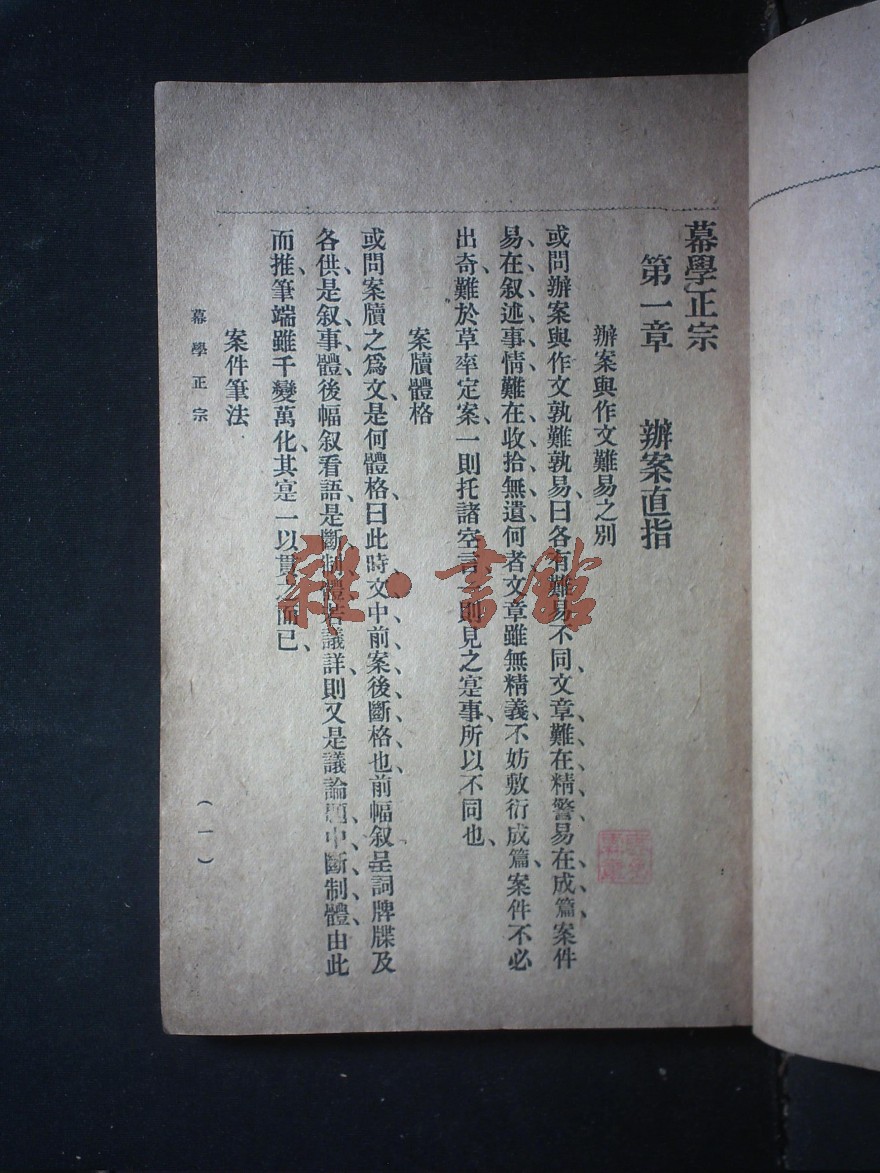 幕學正宗
第一章 辦案直指
辦案與作文難易之別
或問辦案與作文孰難孰易、曰各有難易不同、文章難在精警、易在成篇、案件
易在叙述事情、難在收拾無遺、何者、文章雖無精義、不妨敷衍成篇、案件不必
出奇、難於草率定案、一則托諸空言、一則見之寔事、所以不同也、
案牘體格
或問案牘之爲文、是何體格、曰此時文中前案後斷格也、前幅叙呈詞牌牒及
各供、是叙事體、後幅叙看語、是斷制體、若議詳、則又是議論題中斷制體、由此
而推、筆端雖千變萬化、其寔一以貫之而已、
案件筆法
幕學正宗
(一)
雜·書館